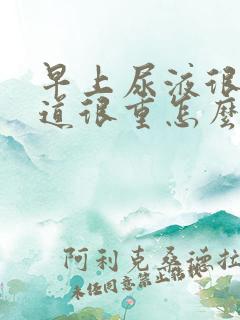 早上尿液很
道很重怎麽
阿利克桑德拉
未经同意禁止转载